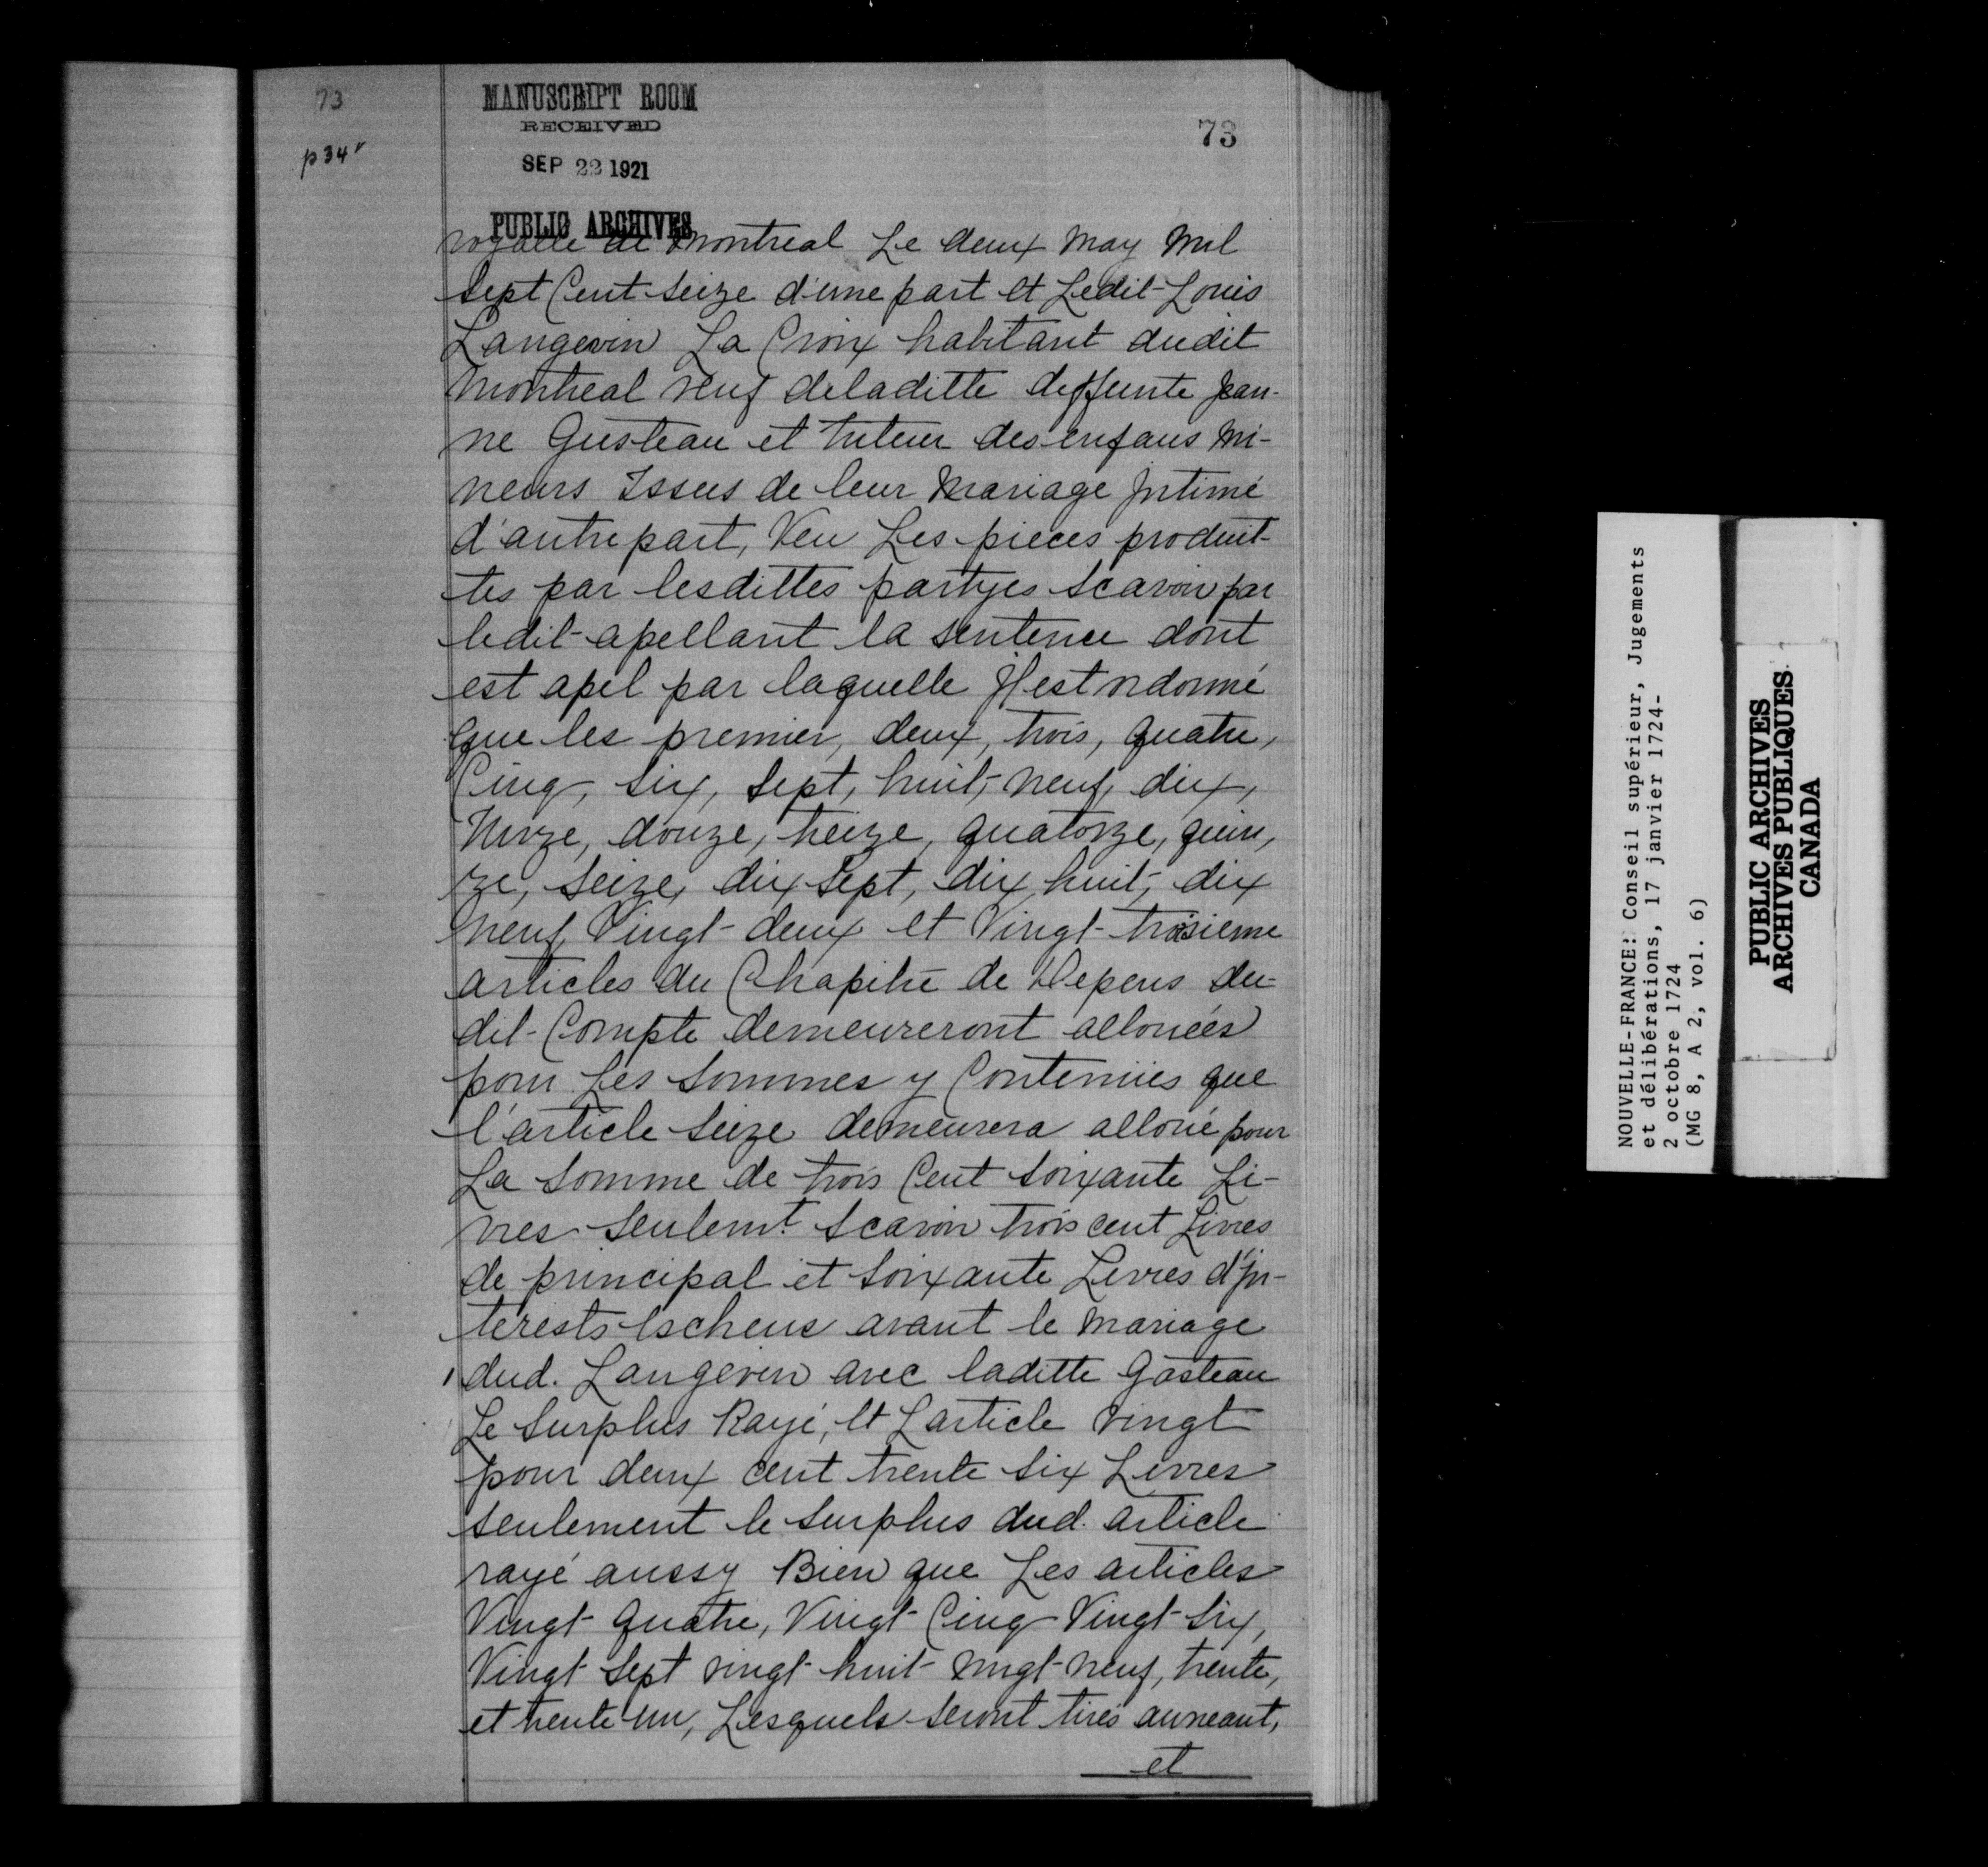 73
p 34 v
MANUSCRIPT ROOM
RECEIVED
SEP 22 1921
PUBLIC ARCHIVES
73
royalle de Montreal Le deux May Mil
Sept Cent Seize d'une part et Ledit Louis
Langevin La Croix habitant dudit
Montreal veuf deladitte deffunte Jean-
ne Gusteau et tuteur des enfans Mi-
neurs Issus de leur Mariage Jntimé
d'autre part, Veu Les pieces produit-
tes par lesdittes partyes Scavoir par
ledit apellant la Sentence dont
est apel par laquelle Jl est ordonné
que les premier, deux, trois, quatre,
Cinq, Six, Sept, huit, neuf, dix,
Unze, douze, treize, quatorze, quin,
ze, Seize, dix Sept, dix huit, dix
neuf, Vingt deux et Vingt troisieme
articles du Chapitre de Depens du-
dit Compte demeureront allouées
pour Les Sommes y Contenües que
l'article Seize demeurera alloüé pour
La Somme de trois Cent Soixante Li-
vres Seulemt. Scavoir trois cent Livres
de principal et Soixante Livres d'Jn-
terests Escheus avant le Mariage
dud. Langevin avec laditte Gasteau
Le Surplus Rayé, et Larticle vingt
pour deux cent trente Six Livres
Seulement le Surplus dud. article
rayé aussy Bien que Les articles
Vingt quatre, Vingt Cinq Vingt Six,
Vingt Sept vingt huit vingt neuf, trente,
et trente un, Lesquels Seront tirés auneant,
et
NOUVELLE-FRANCE: Conseil supérieur, Jugements
et délibérations, 17 janvier 1724-
2 octobre 1724
(MG 8, A 2, vol. 6)
PUBLIC ARCHIVES
ARCHIVES PUBLIQUES
CANADA